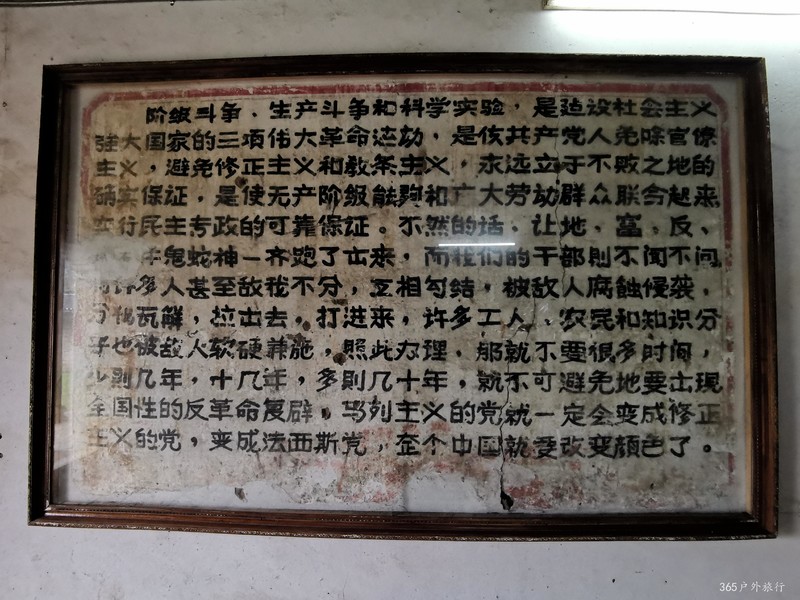 阶级斗争、生产斗争和科学实验，是建设社会主义
强大国家的三项伟大革命运动，是使共产党人免除官僚
主义，避免修正主义和教条主义，永远立于不败之地的
确实保证，是使无产阶级能夠和广大劳动群众联合起来
实行民主专政的可靠保证。不然的话，让地、富、反、
牛鬼蛇神一齐跑了出来，而我们的干部则不闻不问
许多人甚至敌我不分，互相勾结，被敌人腐蝕侵袭，
分化瓦解，拉出去，打进来，许多工人、农民和知识分
子也被敌人软硬兼施，照此办理，那就不要很多时间，
少则几年，十几年，多则几十年，就不可避免地要出现
全国性的反革命复辟，马列主义的党就一定会变成修正
主义的党，变成法西斯党，整个中国就要改变颜色了。
365户外旅行